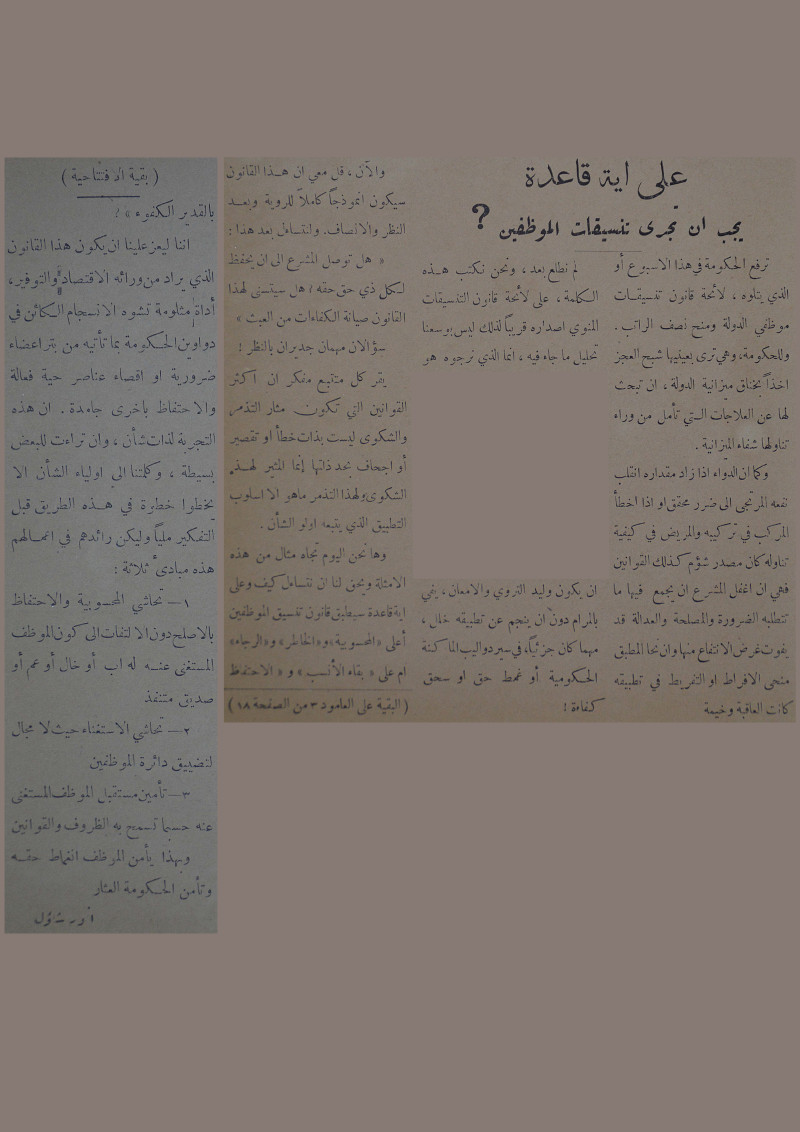 على اية قاعدة
يجب ان تجرى تنسيقات الموظفين ؟
ترفع الحكومة في هذا الاسبوع أو
الذي يتلوه ، لائحة قانون تنسيقات
موظفي الدولة ومنح نصف الراتب .
وللحكومة، وهي ترى بعينيها شبح العجز
اخذاً بخناق ميزانية الدولة ، ان تبحث
لها عن العلاجات التي تأمل من وراء
تناولها شفاء الميزانية .
وكما ان الدواء اذا زاد مقداره انقلب
نفعه المرتجى الى ضرر محقق او اذا اخطأ
المركب في تركيبه والمريض في كيفية
تناوله كان مصدر شؤم كذلك القوانين
فهي ان اغفل المشرع ان يجمع فيها ما
تتطلبه الضرورة والمصلحة والعدالة قد
يفوت غرض الانتفاع منها وان نحا المطبق
منحى الافراط او التفريط في تطبيقه
كانت العاقبة وخيمة
لم نطلع بعد ، ونحن نكتب هذه
الكلمة ، على لائحة قانون التنسيقات
المنوي اصداره قريباً لذلك ليس بوسعنا
تحليل ما جاء فيه ، انما الذي نرجوه هو
ان يكون وليد التروي والامعان ، يفي
بالمرام دون ان ينجم عن تطبيقه خلل ،
مهما كان جزئياً، في سير دواليب الماكنة
الحكومية أو غمط حق او سحق
كفاءة !
والآن ، قل معي ان هذا القانون
سيكون انموذجاً كاملاً للروية وبعد
النظر والانصاف. ولنتساءل بعد هذا :
« هل توصل المشرع الى ان يحفظ
لكل ذي حق حقه ؟ هل سيتسنى لهذا
القانون صيانة الكفاءات من العبث »
سؤالان مهمان جديران بالنظر !
يقر كل متتبع مفكر ان اكثر
القوانين التي تكون مثار التذمر
والشكوى ليست بذات خطأ او تقصير
أو اجحاف بحد ذاتها إنما المثير لهذه
الشكوى ولهذا التذمر ماهو الا اسلوب
التطبيق الذي يتبعه اولو الشأن .
وها نحن اليوم تجاه مثال من هذه
الامثلة ويحق لنا ان نتساءل كيف وعلى
اية قاعدة سيطبق قانون تنسيق الموظفين
أعلى «المحسوبية» و«الخاطر» و«الرجاء»
ام على « بقاء الأنسب » و « الاحتفظ
( البقية على العامود ٣ من الصفحة ١٨ )
( بقية الافتتاحية )
بالقدير الكفوء » ؟
اننا ليعز علينا ان يكون هذا القانون
الذي يراد من ورائه الاقتصاد والتوفير،
أداة مثلومة تشوه الانسجام الكائن في
دواوين الحكومة بما تأتيه من بتر اعضاء
ضرورية او اقصاء عناصر حية فعالة
والاحتفاظ باخرى جامدة . ان هذه
التجربة لذات شأن ، وان تراءت للبعض
بسيطة ، وكلمتنا الى اولياء الشأن الا
يخطوا خطوة في هذه الطريق قبل
التفكير ملياً وليكن رائدهم في اعمالهم
هذه مبادئ ثلاثة :
١ — تحاشي المحسوبية والاحتفاظ
بالاصلح دون الالتفات الى كون الموظف
المستغنى عنه له اب أو خال أو عم أو
صديق متنفذ
٢ — تحاشي الاستغناء حيث لا مجال
لتضييق دائرة الموظفين
٣ — تأمين مستقبل الموظف المستغنى
عنه حسبما تسمح به الظروف والقوانين
وبهذا يأمن الموظف انغماط حقه
وتأمن الحكومة العثار